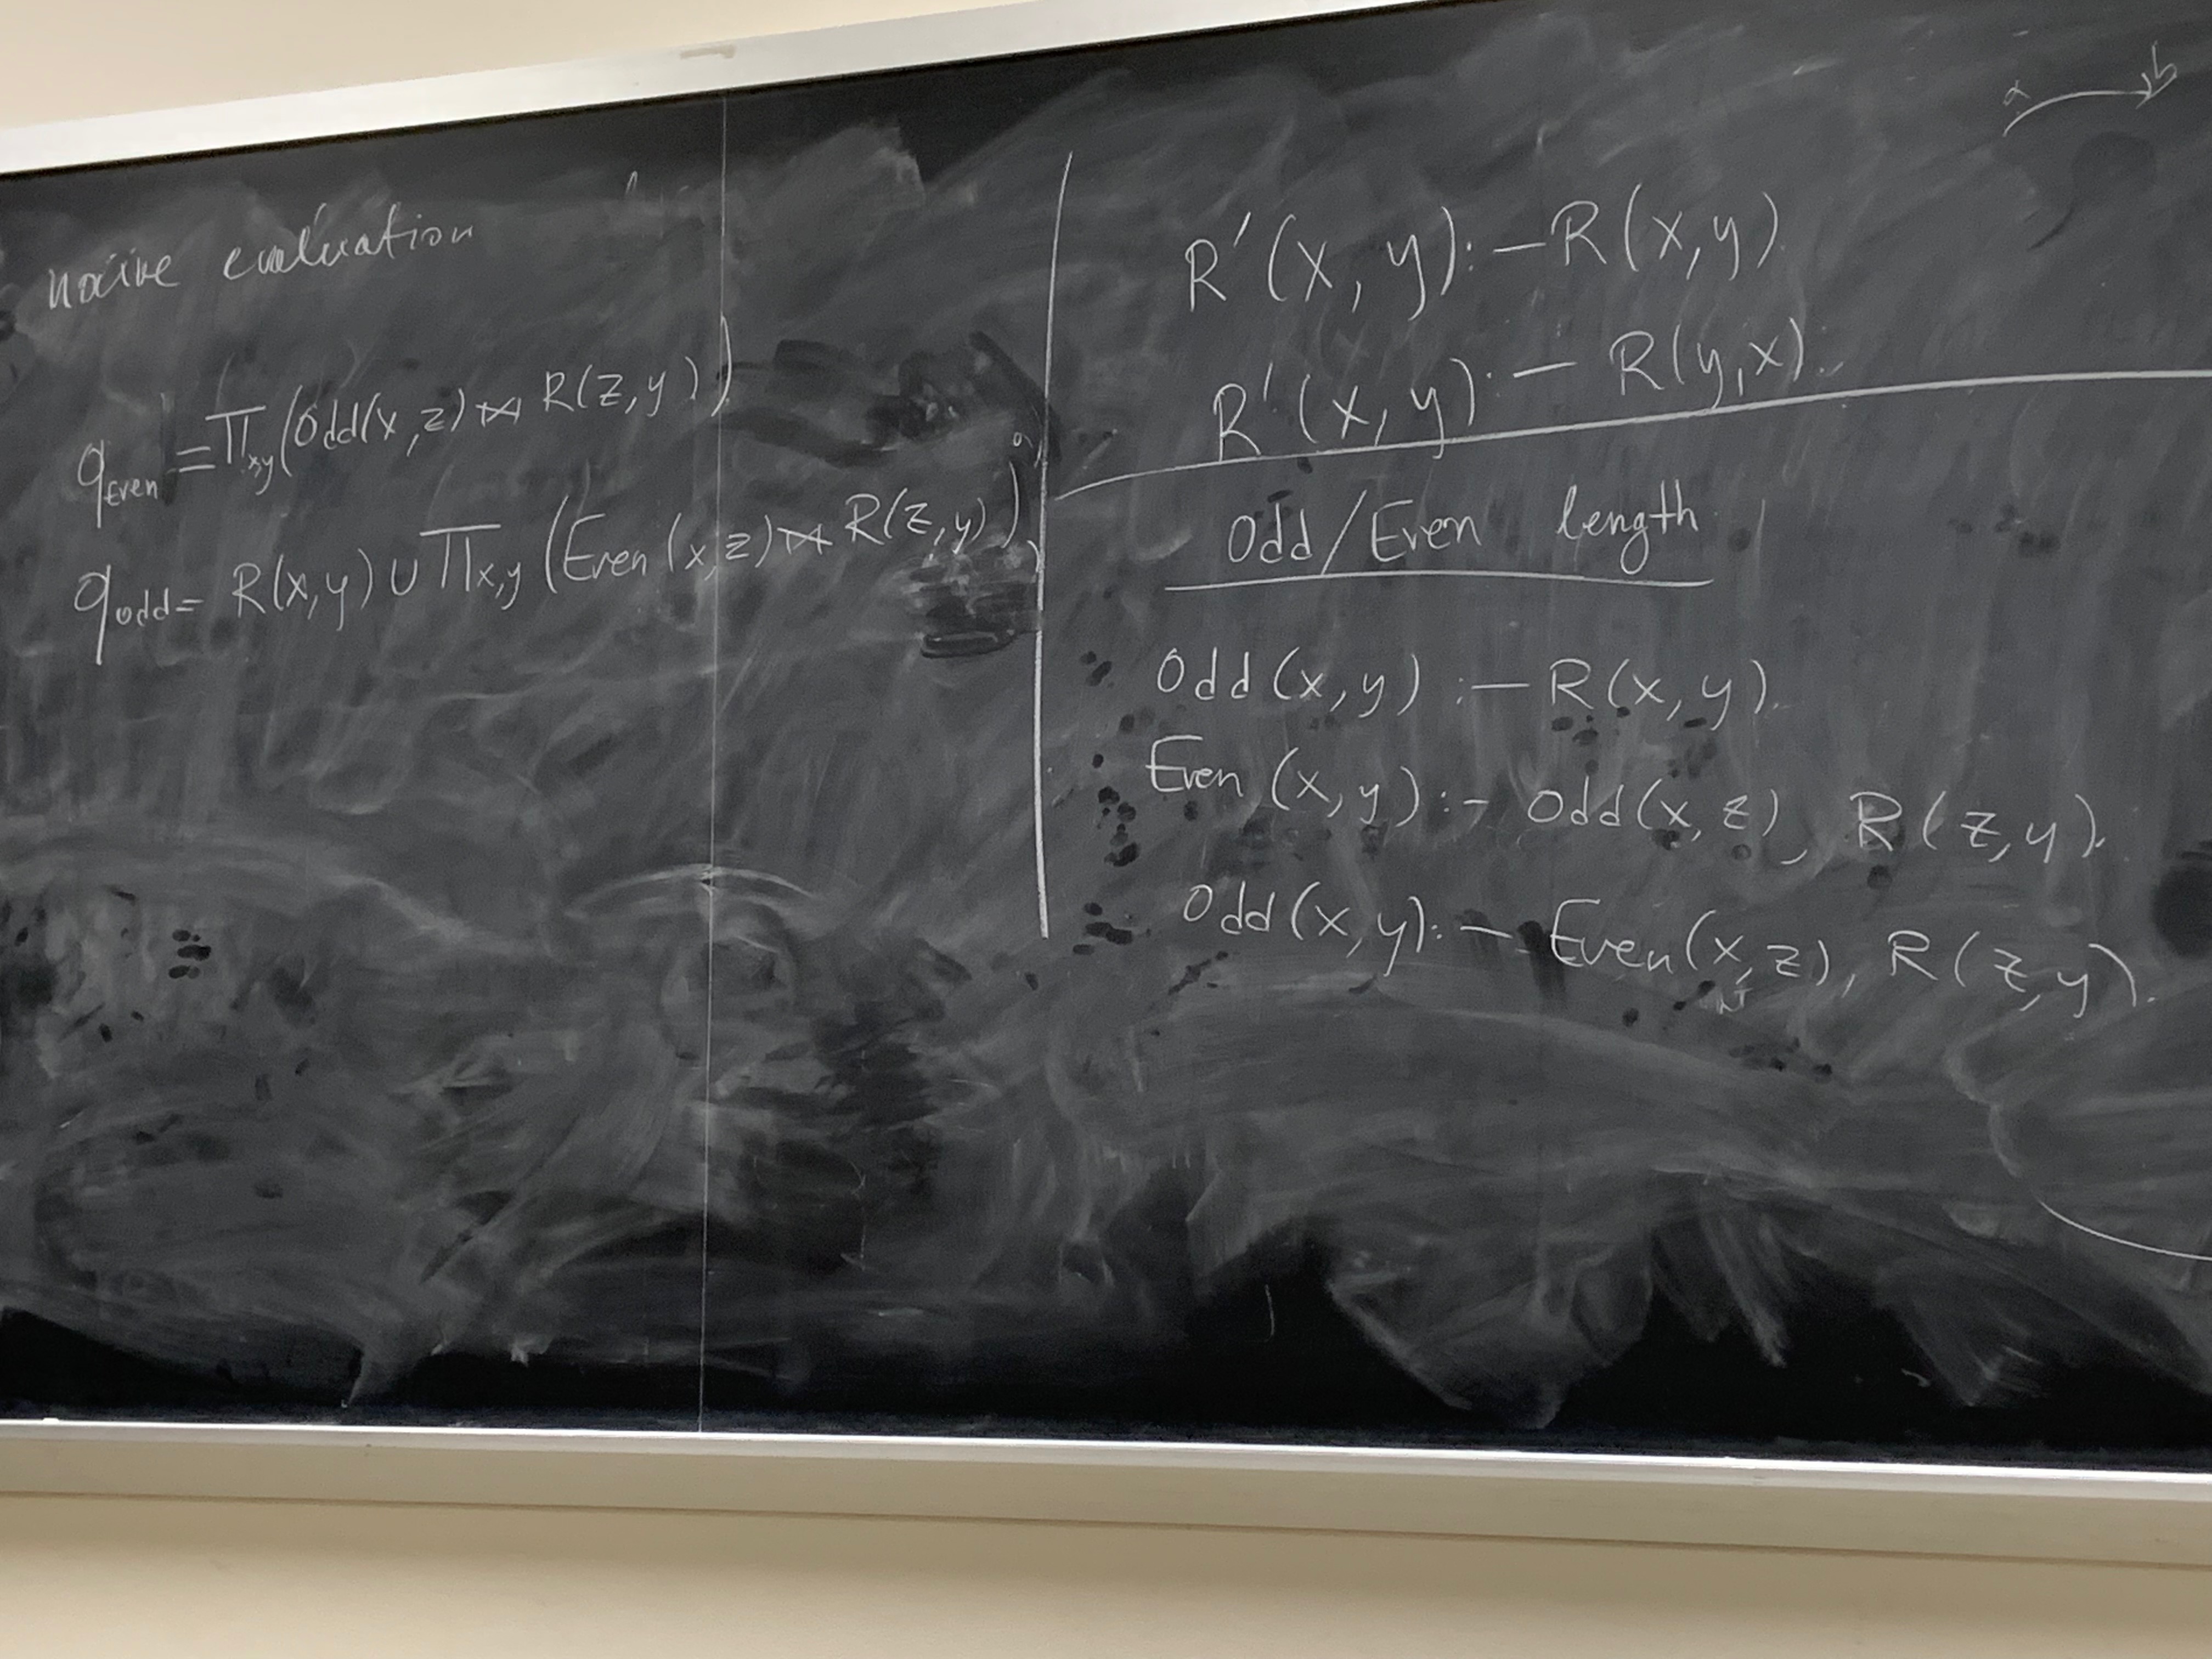 naive evaluation
q_Even = Π_x,y (Odd(x,z) ⋈ R(z,y))
q_odd = R(x,y) ∪ Π_x,y (Even(x,z) ⋈ R(z,y))
a b
R'(x,y) :- R(x,y).
R'(x,y) :- R(y,x).
Odd/Even length
Odd(x,y) :- R(x,y).
Even(x,y) :- Odd(x,z), R(z,y).
Odd(x,y) :- Even(x,z), R(z,y).